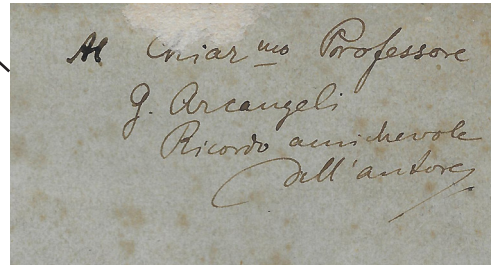 Al Chiar.mo Professore
G. Arcangeli
Ricordo amichevole
dell'autore